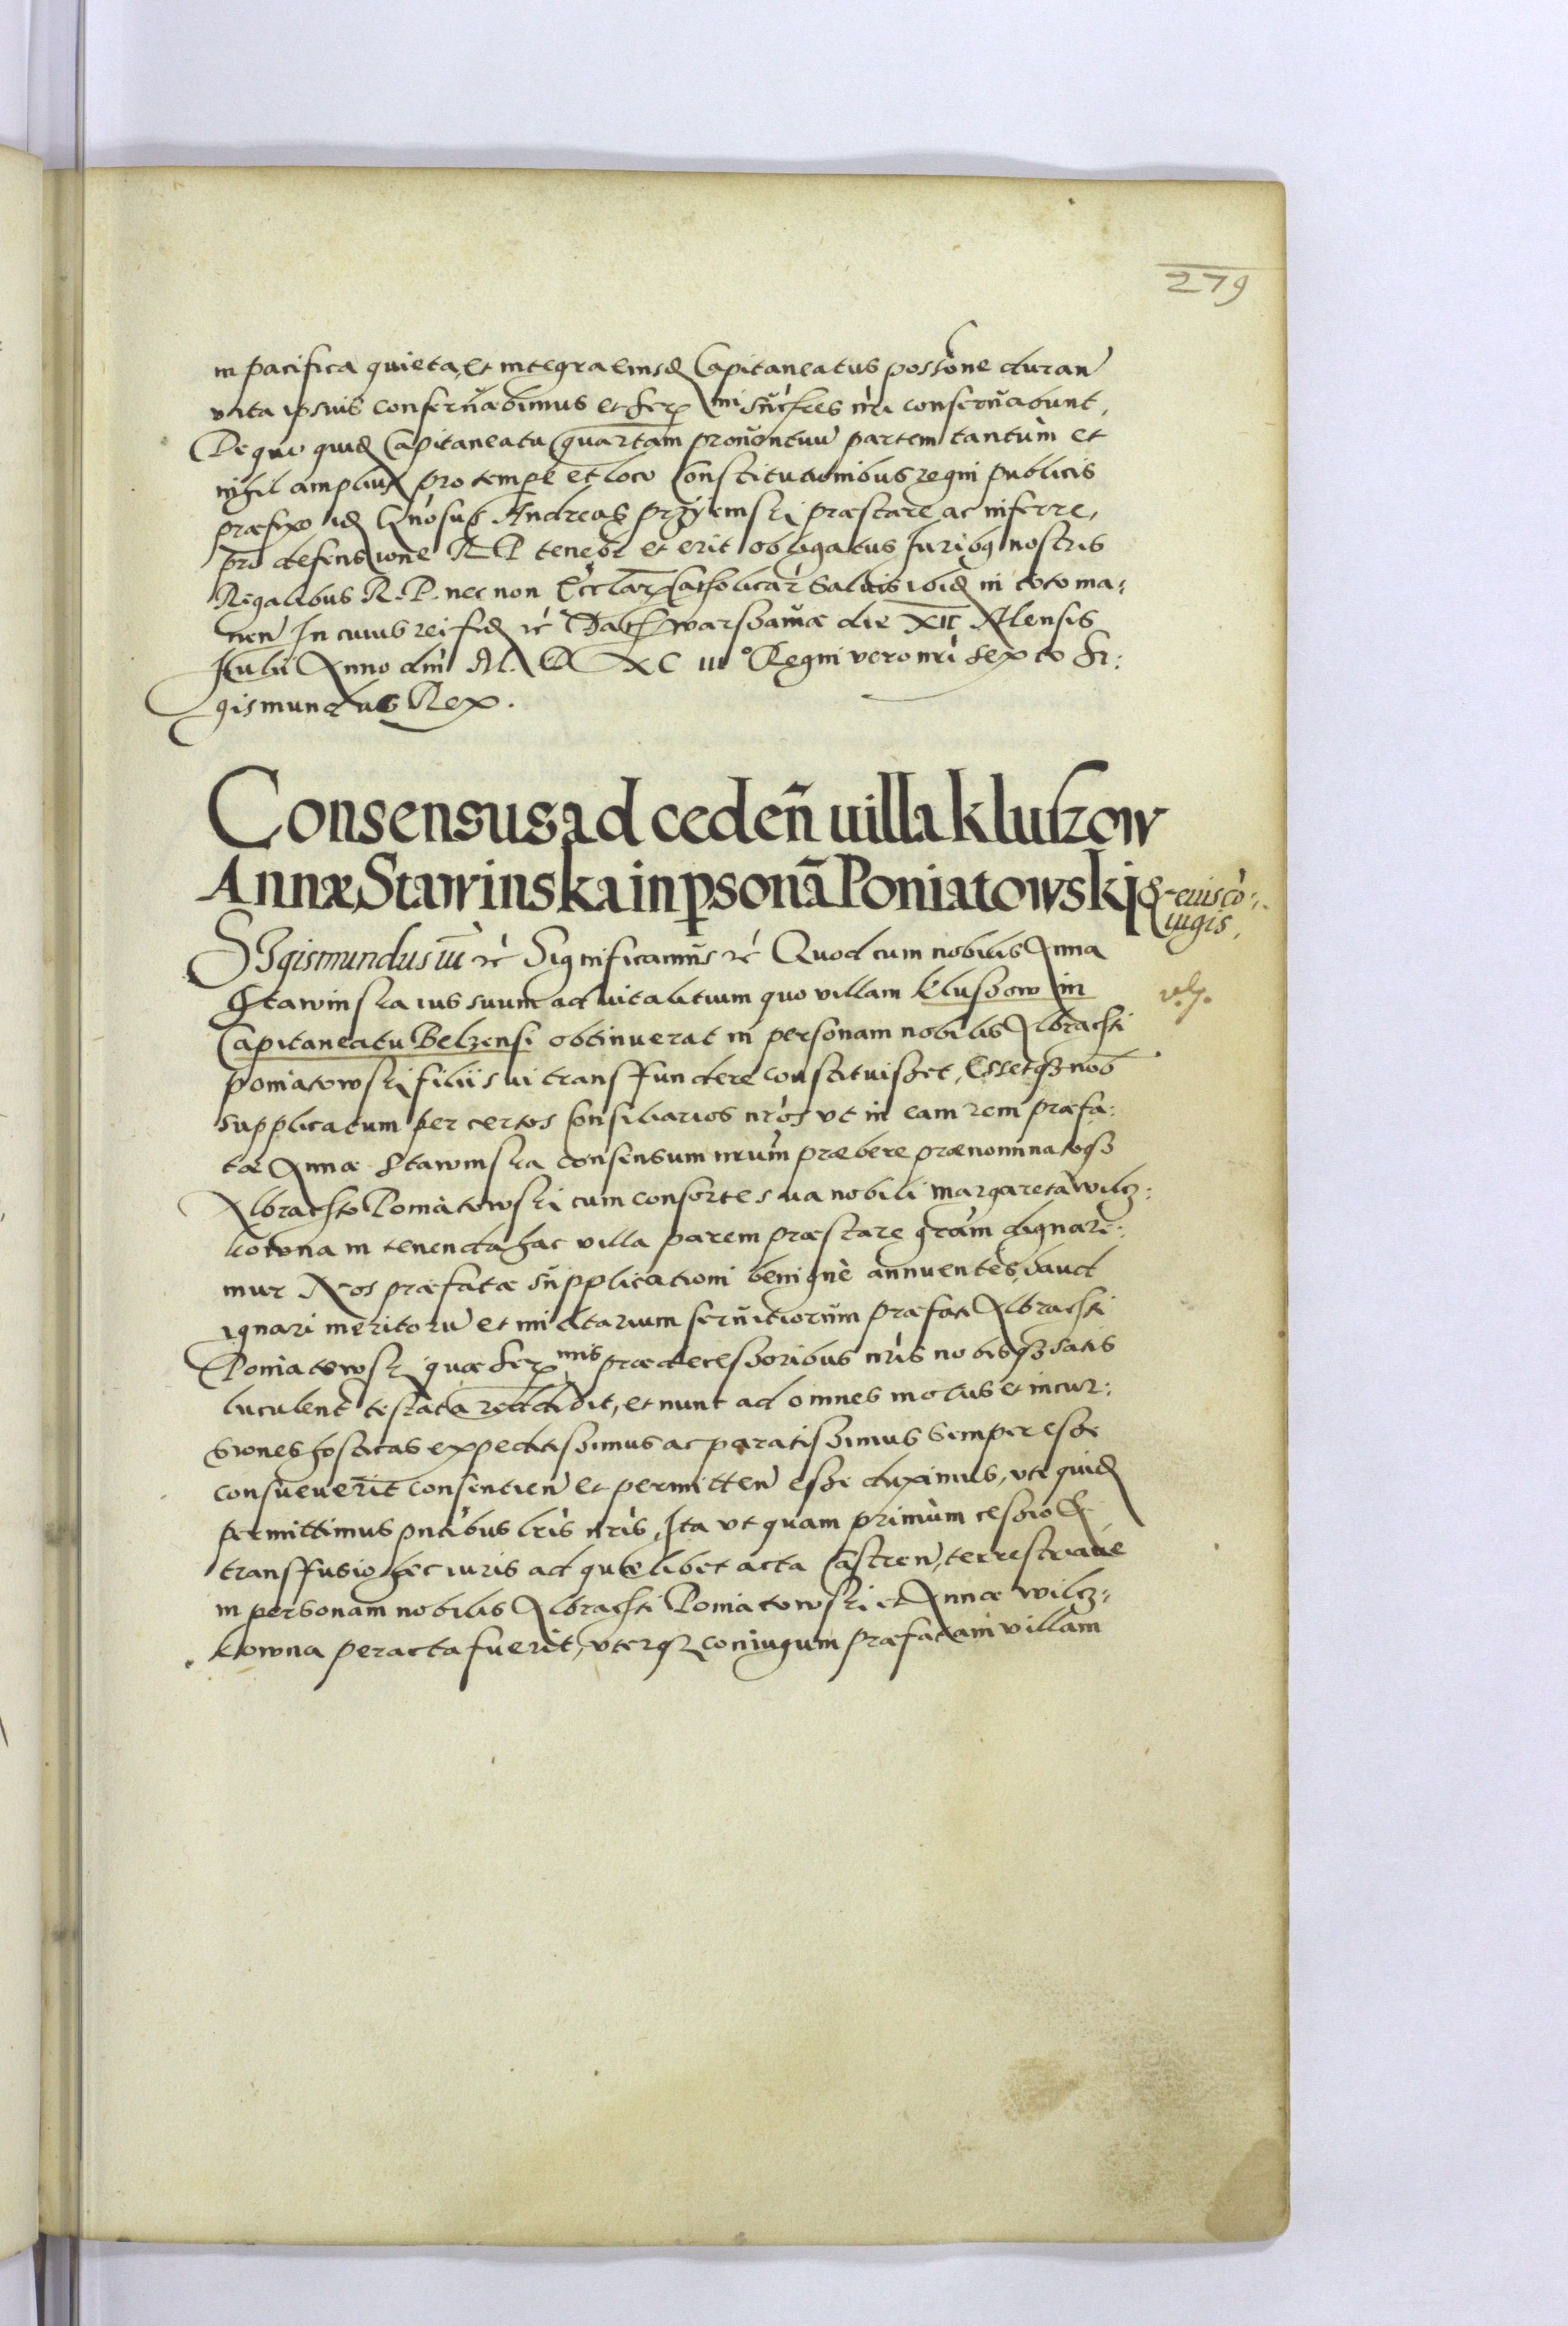 279
in pacifica quieta, et integra eiusd Capitaneatus possōne duran̄
vita ipsius conseruabimus et Ser mi sūcs̄res nr̄i conseruabunt,
De quo quid Capitaneatu quartam prouentuū partem tantùm et
nihil amplius pro tempe et loco Constitutionibus regni publicis
præfixo id Gn̄osus Andreas przÿiemski præstare ac inferre,
pro defensione R P tenebr et erit obligatus Juribq nostris
Regalibus R. P. nec non Eccl̄ar Catholicar̄ Saluis ibid in toto ma:
nen̄ In cuius rei fid rč Dat warssauiæ die XII Mensis
Julii Anno dm̄ M. D XC III° Regni vero nr̄i sexto Si:
gismundus Rex.
Consensus ad cedeñ uilla kluszow
Annæ Stawinska in psonā Poniatowskj & eius cō:
iugis.
SIgismundus iii rč Significamus rč Quod cum nobilis Anna
Stawinska ius suum aduitalitium quo villam klussow in
Capitaneatu Belzensi obtinuerat in personam nobilis Albrachti
poniatowski filii sui transffundere constituisset, Essetqz nob̄
supplicatum per certos Consiliarios nr̄os vt in eam rem præfa:
tæ Annæ Stawinska consensum nr̄um præbere prænominatoqz
Albrachto Poniatowski cum consorte sua nobili Margareta wilcz:
kowna in tenenda hac villa parem præstare gr̄am dignare:
mur Nos præfatæ supplicationi benignè annuentes, haud
ignari meritorū et militarium seruitiorum præfati Albrachti
Poniatowski quæ Ser mis prædecessoribus nr̄is nobisqz satis
luculent testata reddidit, et nunc ad omnes motus et incur:
siones hosticas expeditissimus ac paratissimus semper esse
consueuerit consentien̄ et permitten̄ esse duximus, vti quid
permittimus pn̄tibus lr̄is nr̄is, Ita vt quam primùm cessio &
transffusio hæc iuris ad quælibet acta Castren̄, terrestriaue
in personam nobilis Albrachti Poniatowski et Annæ wilcz:
kowna peracta fuerit, vterqz coniugum præfatam villam